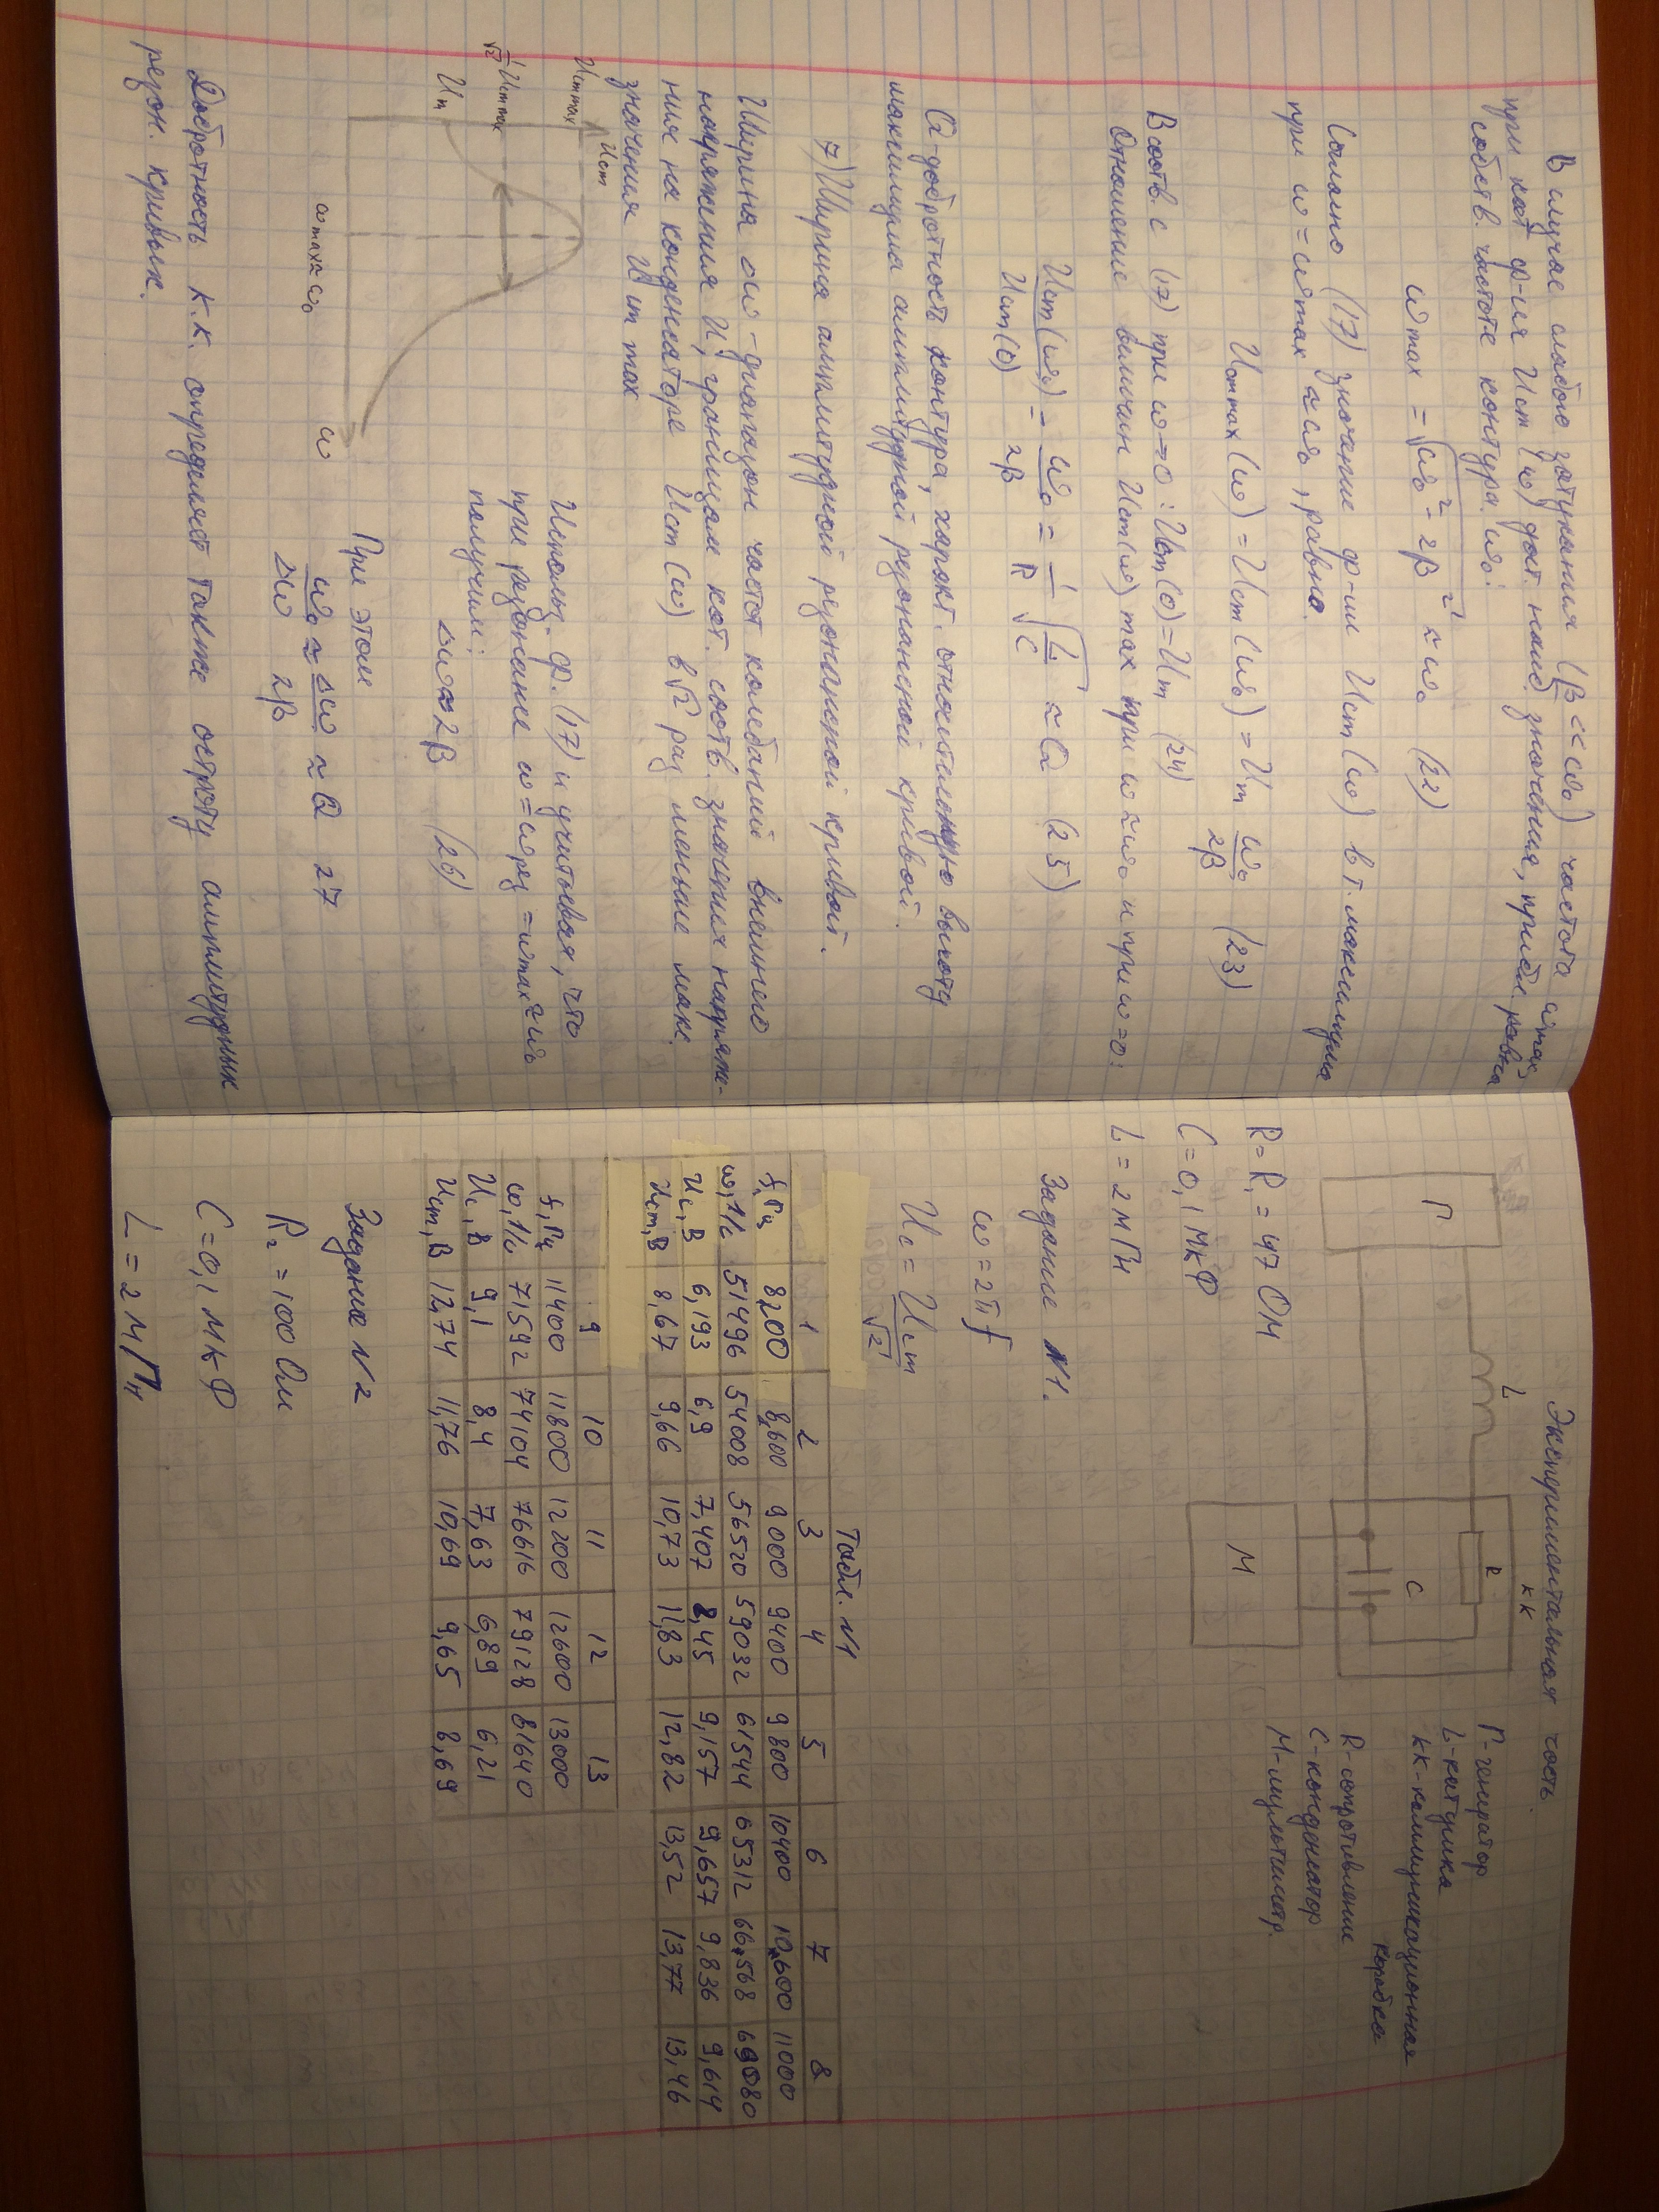 В случае слабого затухания (β << ω₀) частота ωmax,
при кот. ф-ия Ucm(ω) дост. наиб. значения, прибл. равна
собств. частоте контура ω₀:
ωmax = √(ω₀² - 2β²) ≈ ω₀ (22)
Согласно (17) значение ф-ии Ucm(ω) в т. максимума
при ω = ωmax ≈ ω₀, равно.
Ucmmax(ω) = Ucm(ω₀) = Um ω₀/2β (23)
В соотв. с (17) при ω→0: Ucm(0) = Um (24)
Отношение величин Ucm(ω) max при ω≈ω₀ и при ω=0:
Ucm(ω₀)/Ucm(0) = ω₀/2β = 1/R √(L/C) ≈ Q (25)
Q-добротность контура, характ. относительную высоту
максимума амплитудной резонансной кривой.
7) Ширина амплитудной резонансной кривой.
Ширина Δω - диапазон частот колебаний внешнего
напряжения U, границам кот. соотв. значения напряже-
ния на конденсаторе Ucm(ω) в √2 раз меньше макс.
значения Ucm max
Ucm
Ucmmax
1/√2 Ucmmax
Um
ωmax≈ω₀
ω
Использ. ф. (17) и учитывая, что
при резонансе ω = ωрез = ωmax ≈ ω₀
получим:
Δω ≈ 2β (26)
При этом
ω₀/Δω ≈ Δω/2β ≈ Q 27
Добротность К.К. определяет также остроту амплитудных
резон. кривых.
Экспериментальная часть.
Г
L
КК
R
C
М
Г-генератор
L-катушка
КК-коммуникационная
коробка
R-сопротивление
C-конденсатор
М-мультиметр.
R = R₁ = 47 Ом
C = 0,1 мкФ
L = 2 мГн
Задание №1.
ω = 2πf
Uc = Ucm/√2
Табл. №1
1 2 3 4 5 6 7 8
f, Гц 8200 8600 9000 9400 9800 10400 10600 11000
ω, 1/с 51496 54008 56520 59032 61544 65312 66568 69080
Uc, В 6,193 6,9 7,407 8,45 9,157 9,657 9,836 9,614
Ucm, В 8,67 9,66 10,73 11,83 12,82 13,52 13,77 13,46
9 10 11 12 13
f, Гц 11400 11800 12200 12600 13000
ω, 1/с 71592 74104 76616 79128 81640
Uc, В 9,1 8,4 7,63 6,89 6,21
Ucm, В 12,74 11,76 10,69 9,65 8,69
Задание №2
R₂ = 100 Ом
C = 0,1 мкФ
L = 2 мГн